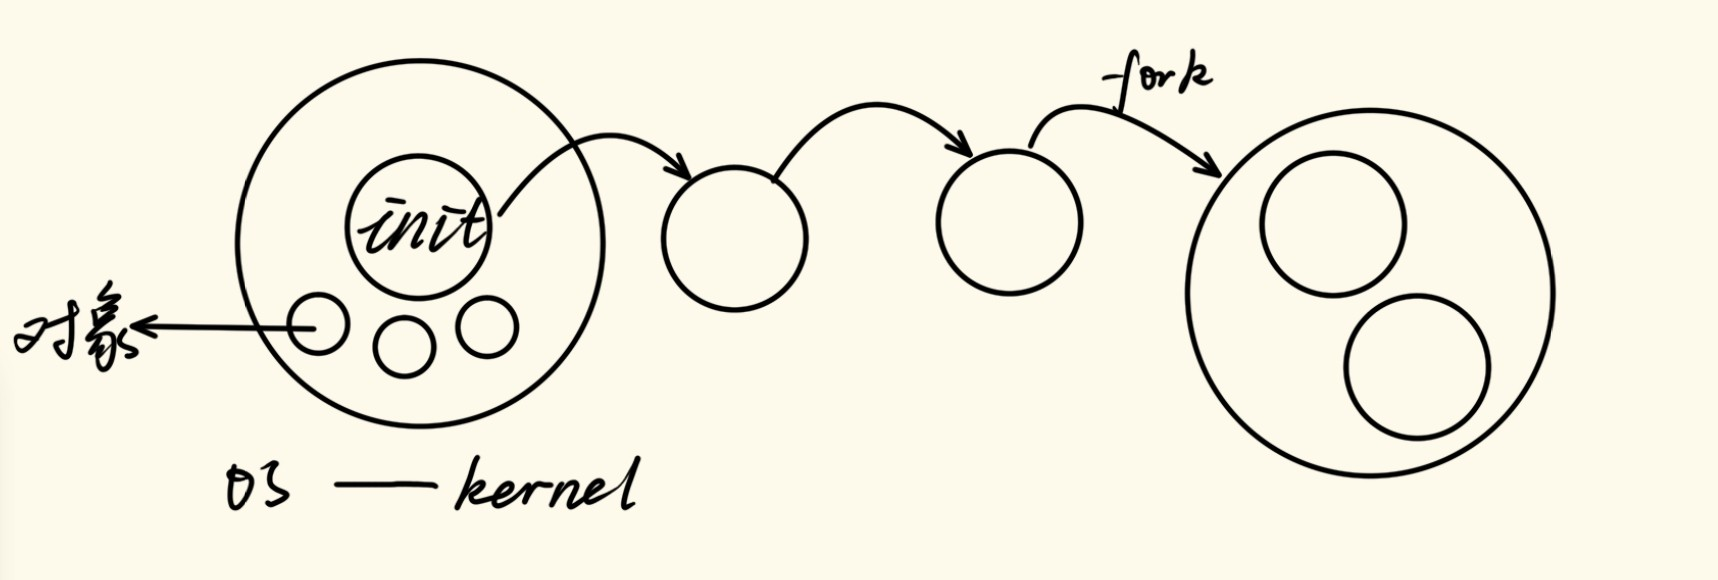 fork
init
对象
OS — kernel